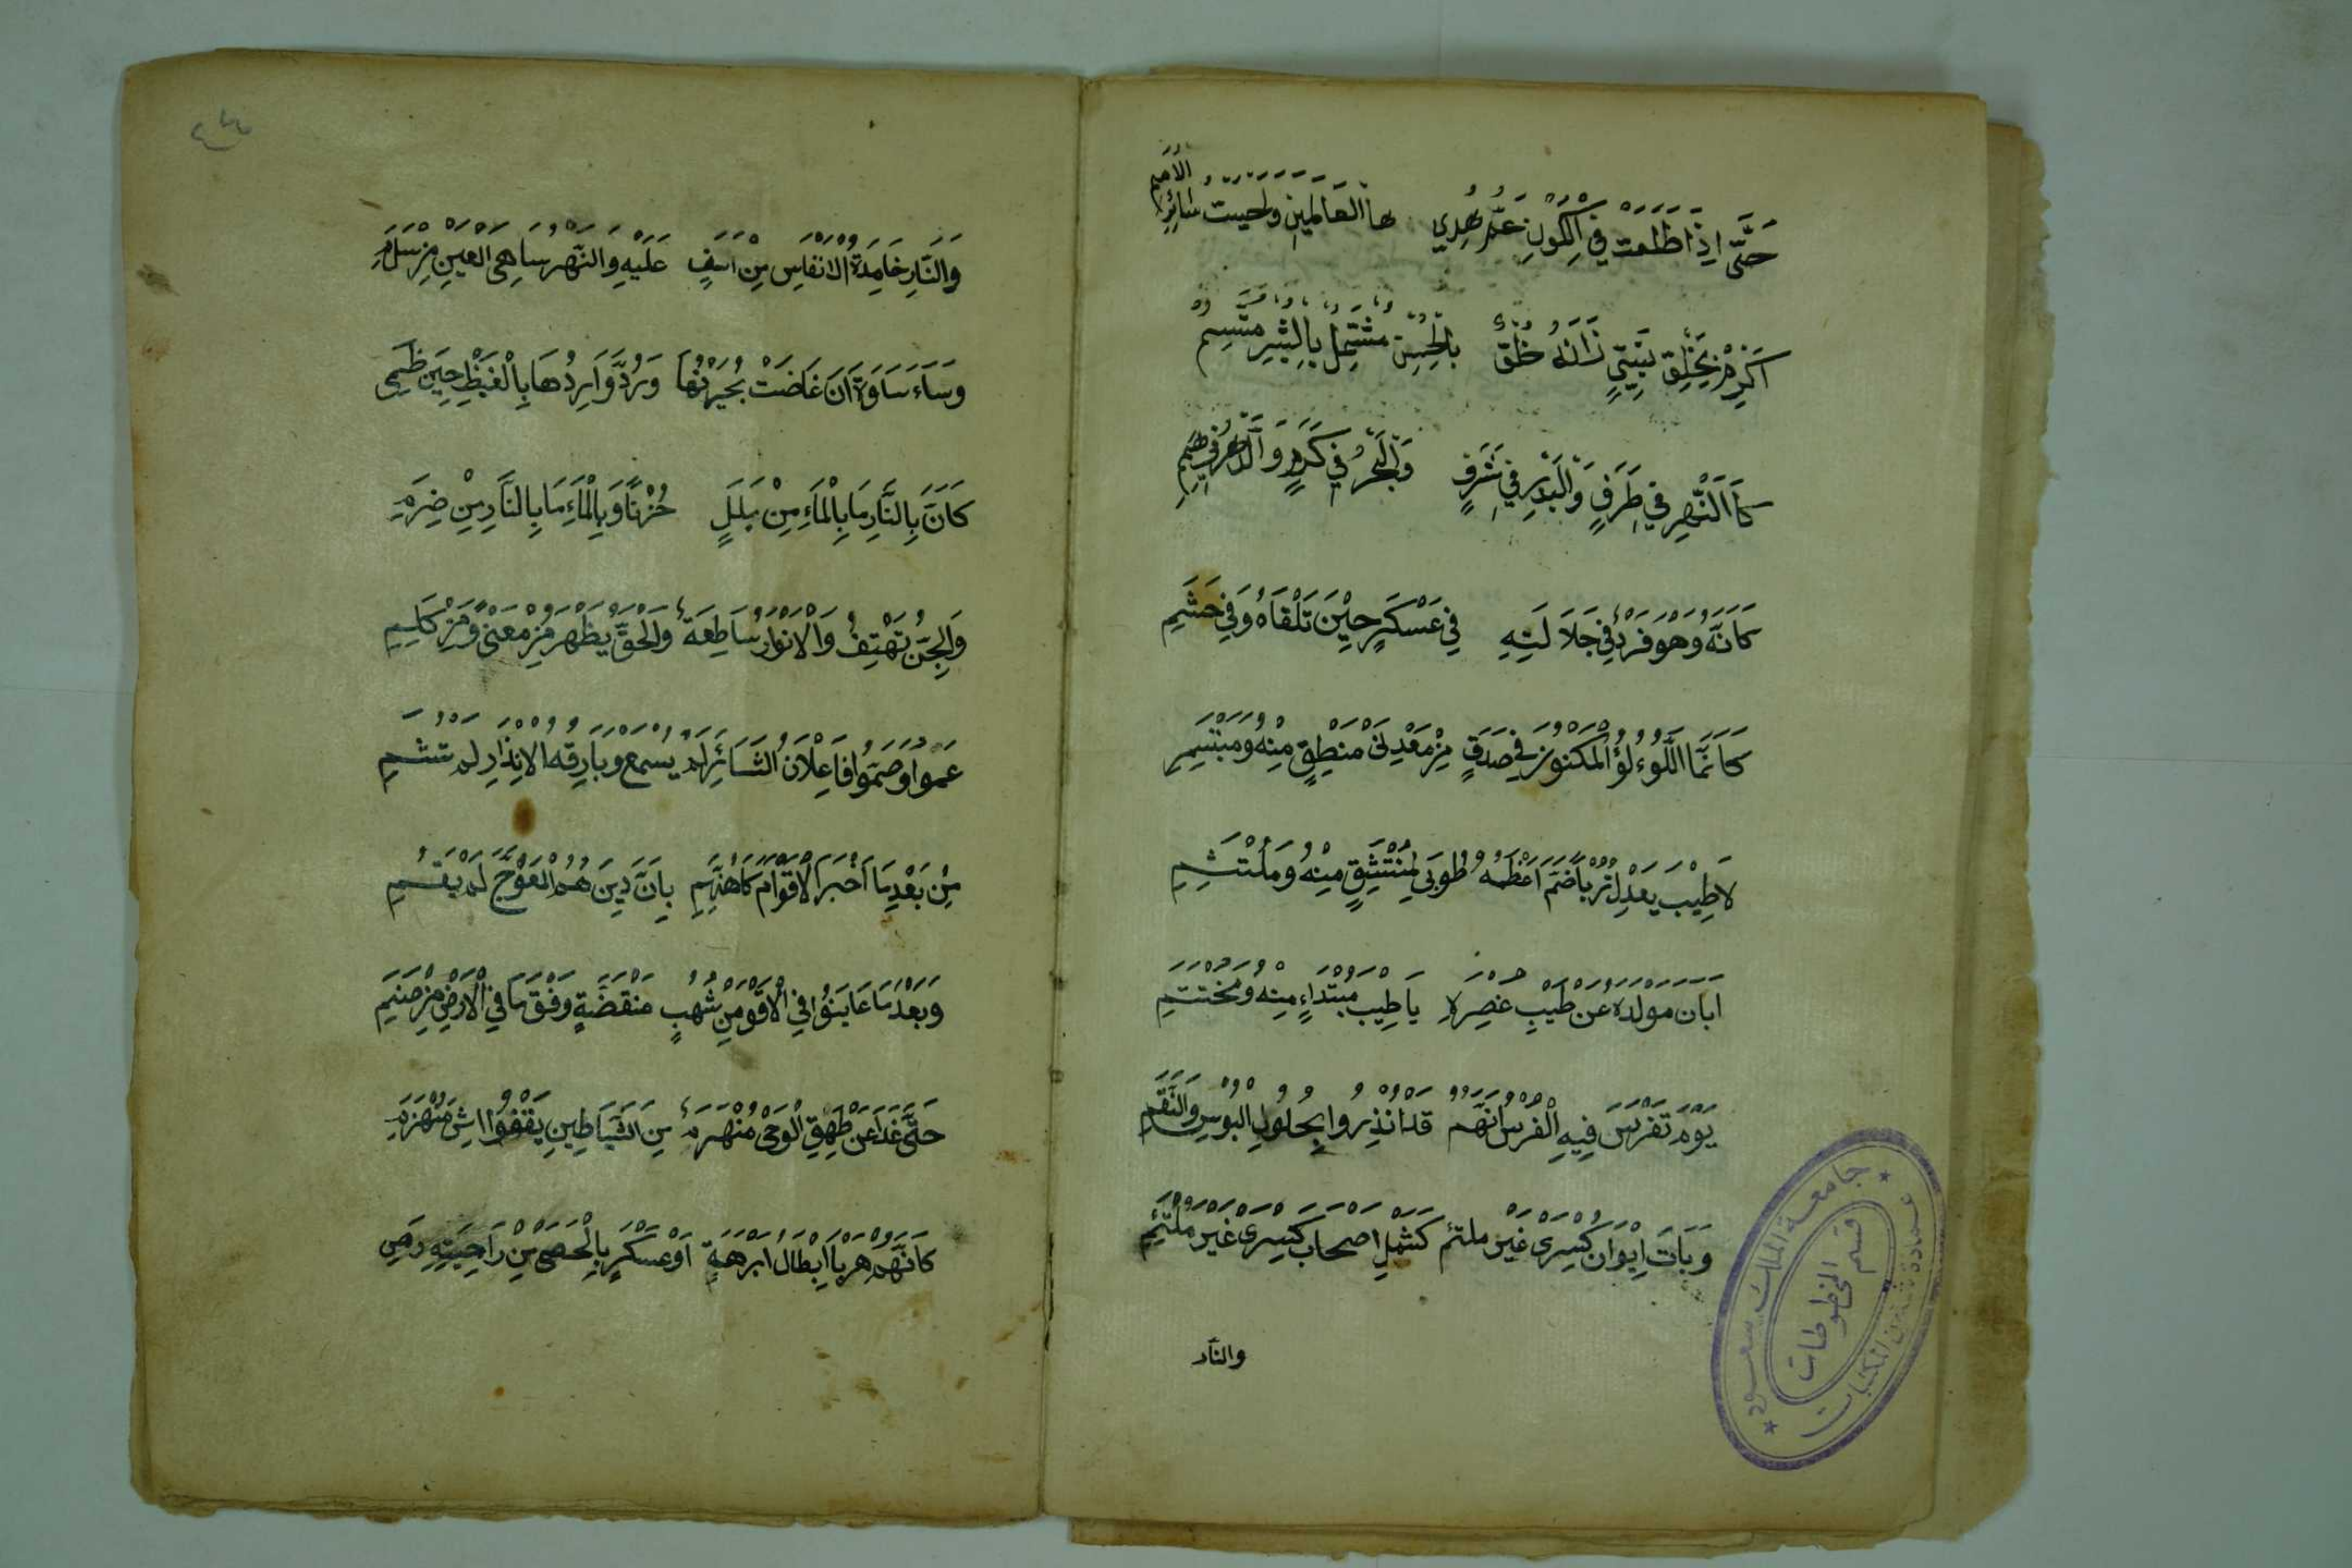 حَتَّى اِذَا طَلَعَتْ فِي الْكَوْنِ عَمَّ هُدِي هَا الْعَالَمِينَ وَاَحْيَتْ سَائِرَ الْاُمَمِ
اَكْرِمْ بِخَلْقِ نَبِيٍّ زَانَهُ خُلُقٌ بِالْحُسْنِ مُشْتَمِلٍ بِالْبِشْرِ مُتَّسِمِ
كَاَالزَّهْرِ فِي طَرَفٍ وَالْبَدْرِ فِي شَرَفٍ وَالْبَحْرُ فِي كَرَمٍ وَالدَّهْرُ فِي هِمَمِ
كَاَنَّهُ وَهُوَ فَرْدٌ فِي جَلَالَتِهِ فِي عَسْكَرٍ حِيْنَ تَلْقَاهُ وَفِي حَشَمِ
كَاَنَّمَا اللُّوءْلُؤُ الْمَكْنُونُ فِي صَدَقٍ مِنْ مَعْدِنَىْ مَنْطِقٍ مِنْهُ وَمُبْتَسَمِ
لَا طِيْبَ يَعْدِلُ تُرْبًا ضَمَّ اَعْظُمَهُ طُوبَى لِمُنْتَشِقٍ مِنْهُ وَمُلْتَثِمِ
اَبَانَ مَوْلِدُهُ عَنْ طِيْبِ عُنْصُرِهِ يَا طِيْبَ مُبْتَدَاءٍ مِنْهُ وَمُخْتَتَمِ
يَوْمٌ تَفَرَّسَ فِيهِ الْفُرْسُ اَنَّهُمْ قَدْ اُنْذِرُوا بِحُلُولِ الْبُوْسِ وَالنِّقَمِ
وَبَاتَ اِيْوَانُ كِسْرَى غَيْرَ ملتئم كَشَمْلِ اَصْحَابِ كِسْرَى غَيْرَ مُلْتَئِمِ
والنار
٤٣
وَالنَّارِ خَامِدَةُ الْاَنْفَاسِ مِنْ اَسَفٍ عَلَيْهِ وَالنَّهْرُ سَاهِىَ الْعَيْنِ مِنْ سَدَمِ
وَسَاءَ سَاوَةَ اَنْ غَاضَتْ بُحَيْرَتُهَا وَرُدَّ وَارِدُهَا بِالْغَيْظِ حِينَ ظَمِى
كَاَنَّ بِالنَّارِ مَا بِالْمَاءِ مِنْ بَلَلٍ حُزْنًا وَبِالْمَاءِ مَا بِالنَّارِ مِنْ ضَرَمِ
وَالْجِنُّ تَهْتِفُ وَالْاَنْوَارُ سَاطِعَةٌ وَالْحَقُّ يَظْهَرُ مِنْ مَعْنًى وَمِنْ كَلِمِ
عَمُوا وَصَمُّوا فَاعِلَانُ الْبَشَائِرِ لَمْ يُسْمَعْ وَبَارِقَةُ الْاِنْذَارِ لَمْ تُشَمِ
مِنْ بَعْدِ مَا اَخْبَرَ الْاَقْوَامَ كَاهِنُهِمِ بِاَنَّ دِينَهُمُ الْمُعْوَجَّ لَمْ يَقُمِ
وَبَعْدَ مَا عَايَنُوا فِي الْاُفْقِ مِنْ شُهُبٍ مُنْقَضَّةٍ وَفْقَ مَا فِي الْاَرْضِ مِنْ صَنَمِ
حَتَّى غَدَا عَنْ طَرِيقِ الْوَحْىِ مُنْهَزِمٌ مِنَ الشَّيَاطِينِ يَقْفُوا اِثْرَ مُنْهَزِمِ
كَاَنَّهُمْ هَرَبًا اَبْطَالُ اَبْرَهَةٍ اَوْ عَسْكَرٍ بِالْحَصَى مِنْ رَاحَتَيْهِ رُمِى
جامعة الملك سعود
عمادة شئون المكتبات
قسم المخطوطات